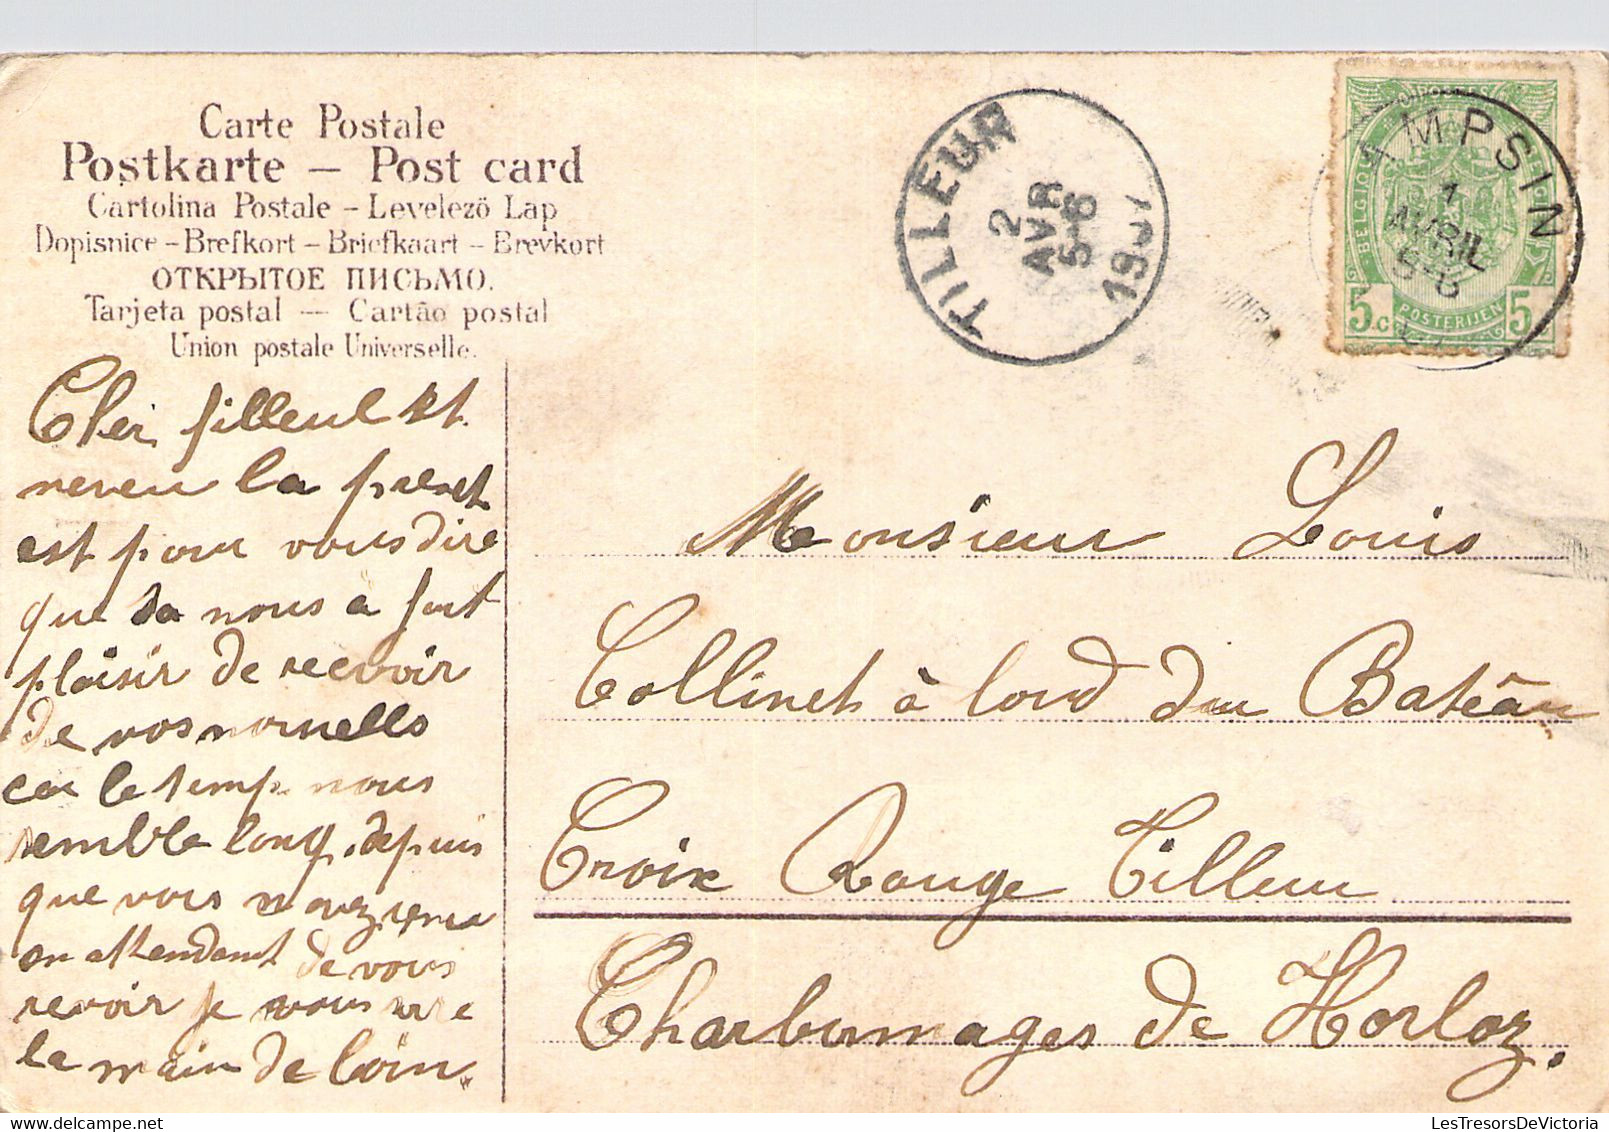 Carte Postale
Postkarte – Post card
Cartolina Postale – Levelezö Lap
Dopisnice – Brefkort – Briefkaart – Brevkort
ОТКРЫТОЕ ПИСЬМО.
Tarjeta postal — Cartão postal
Union postale Universelle.
TILLEUR
2
AVR
5-6
190
AMPSIN
1
AVRIL
5-6
BELGIQUE
POSTERIJEN
5 c 5
Cher filleul et
neveu la present
est pour vous dire
que sa nous a fait
plaisir de recevoir
de vos nouvelles
car le temp nous
semble long. depuis
que vous n avez
en attendant de vous
revoir je vous serre
la main de loin.
Monsieur Louis
Collinet à bord du Bateau
Croix Rouge Tilleur
Charbonnages de Horloz.
LesTresorsDeVictoria
LesTresorsDeVictoria.com